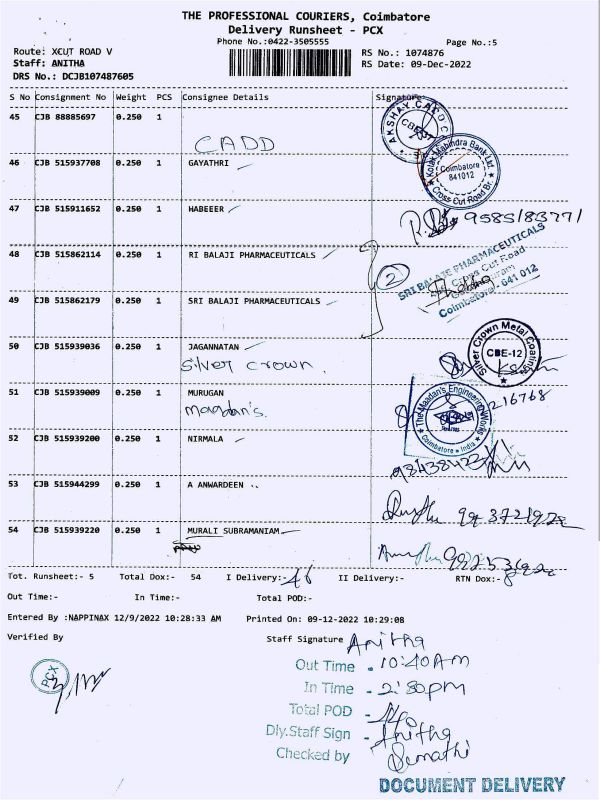 THE PROFESSIONAL COURIERS, Coimbatore
Delivery Runsheet - PCX
Phone No.:0422-3505555
Page No.:5
Route: XCUT ROAD V
RS No.: 1074876
Staff: ANITHA
RS Date: 09-Dec-2022
DRS No.: DCJB107487605
S No Consignment No Weight PCS Consignee Details Signature
45 CJB 88885697 0.250 1
CADD
AKSHAY CADD C
CBE
46 CJB 515937708 0.250 1 GAYATHRI
Kotak Mahindra Bank Ltd.
Coimbatore
641012
Cross Cut Road Br.
47 CJB 515911652 0.250 1 HABEEER
48 CJB 515862114 0.250 1 RI BALAJI PHARMACEUTICALS
2
SRI BALAJI PHARMACEUTICALS
Cross Cut Road
Coimbatore - 641 012
49 CJB 515862179 0.250 1 SRI BALAJI PHARMACEUTICALS
50 CJB 515939036 0.250 1 JAGANNATAN
Silver Crown.
Silver Crown Metal Coatings
CBE-12
51 CJB 515939009 0.250 1 MURUGAN
Maadan's.
The Maadan's Engineering Works
Coimbatore India
52 CJB 515939200 0.250 1 NIRMALA
53 CJB 515944299 0.250 1 A ANWARDEEN ..
54 CJB 515939220 0.250 1 MURALI SUBRAMANIAM
Tot. Runsheet:- 5 Total Dox:- 54 I Delivery:- 46 II Delivery:- RTN Dox:- 8
Out Time:- In Time:- Total POD:-
Entered By :NAPPINAX 12/9/2022 10:28:33 AM Printed On: 09-12-2022 10:29:08
Verified By Staff Signature Anitha
PCX
Out Time - 10:40 AM
In Time - 2:30pm
Total POD - 46
Dly.Staff Sign - Anitha
Checked by Sumathi
DOCUMENT DELIVERY